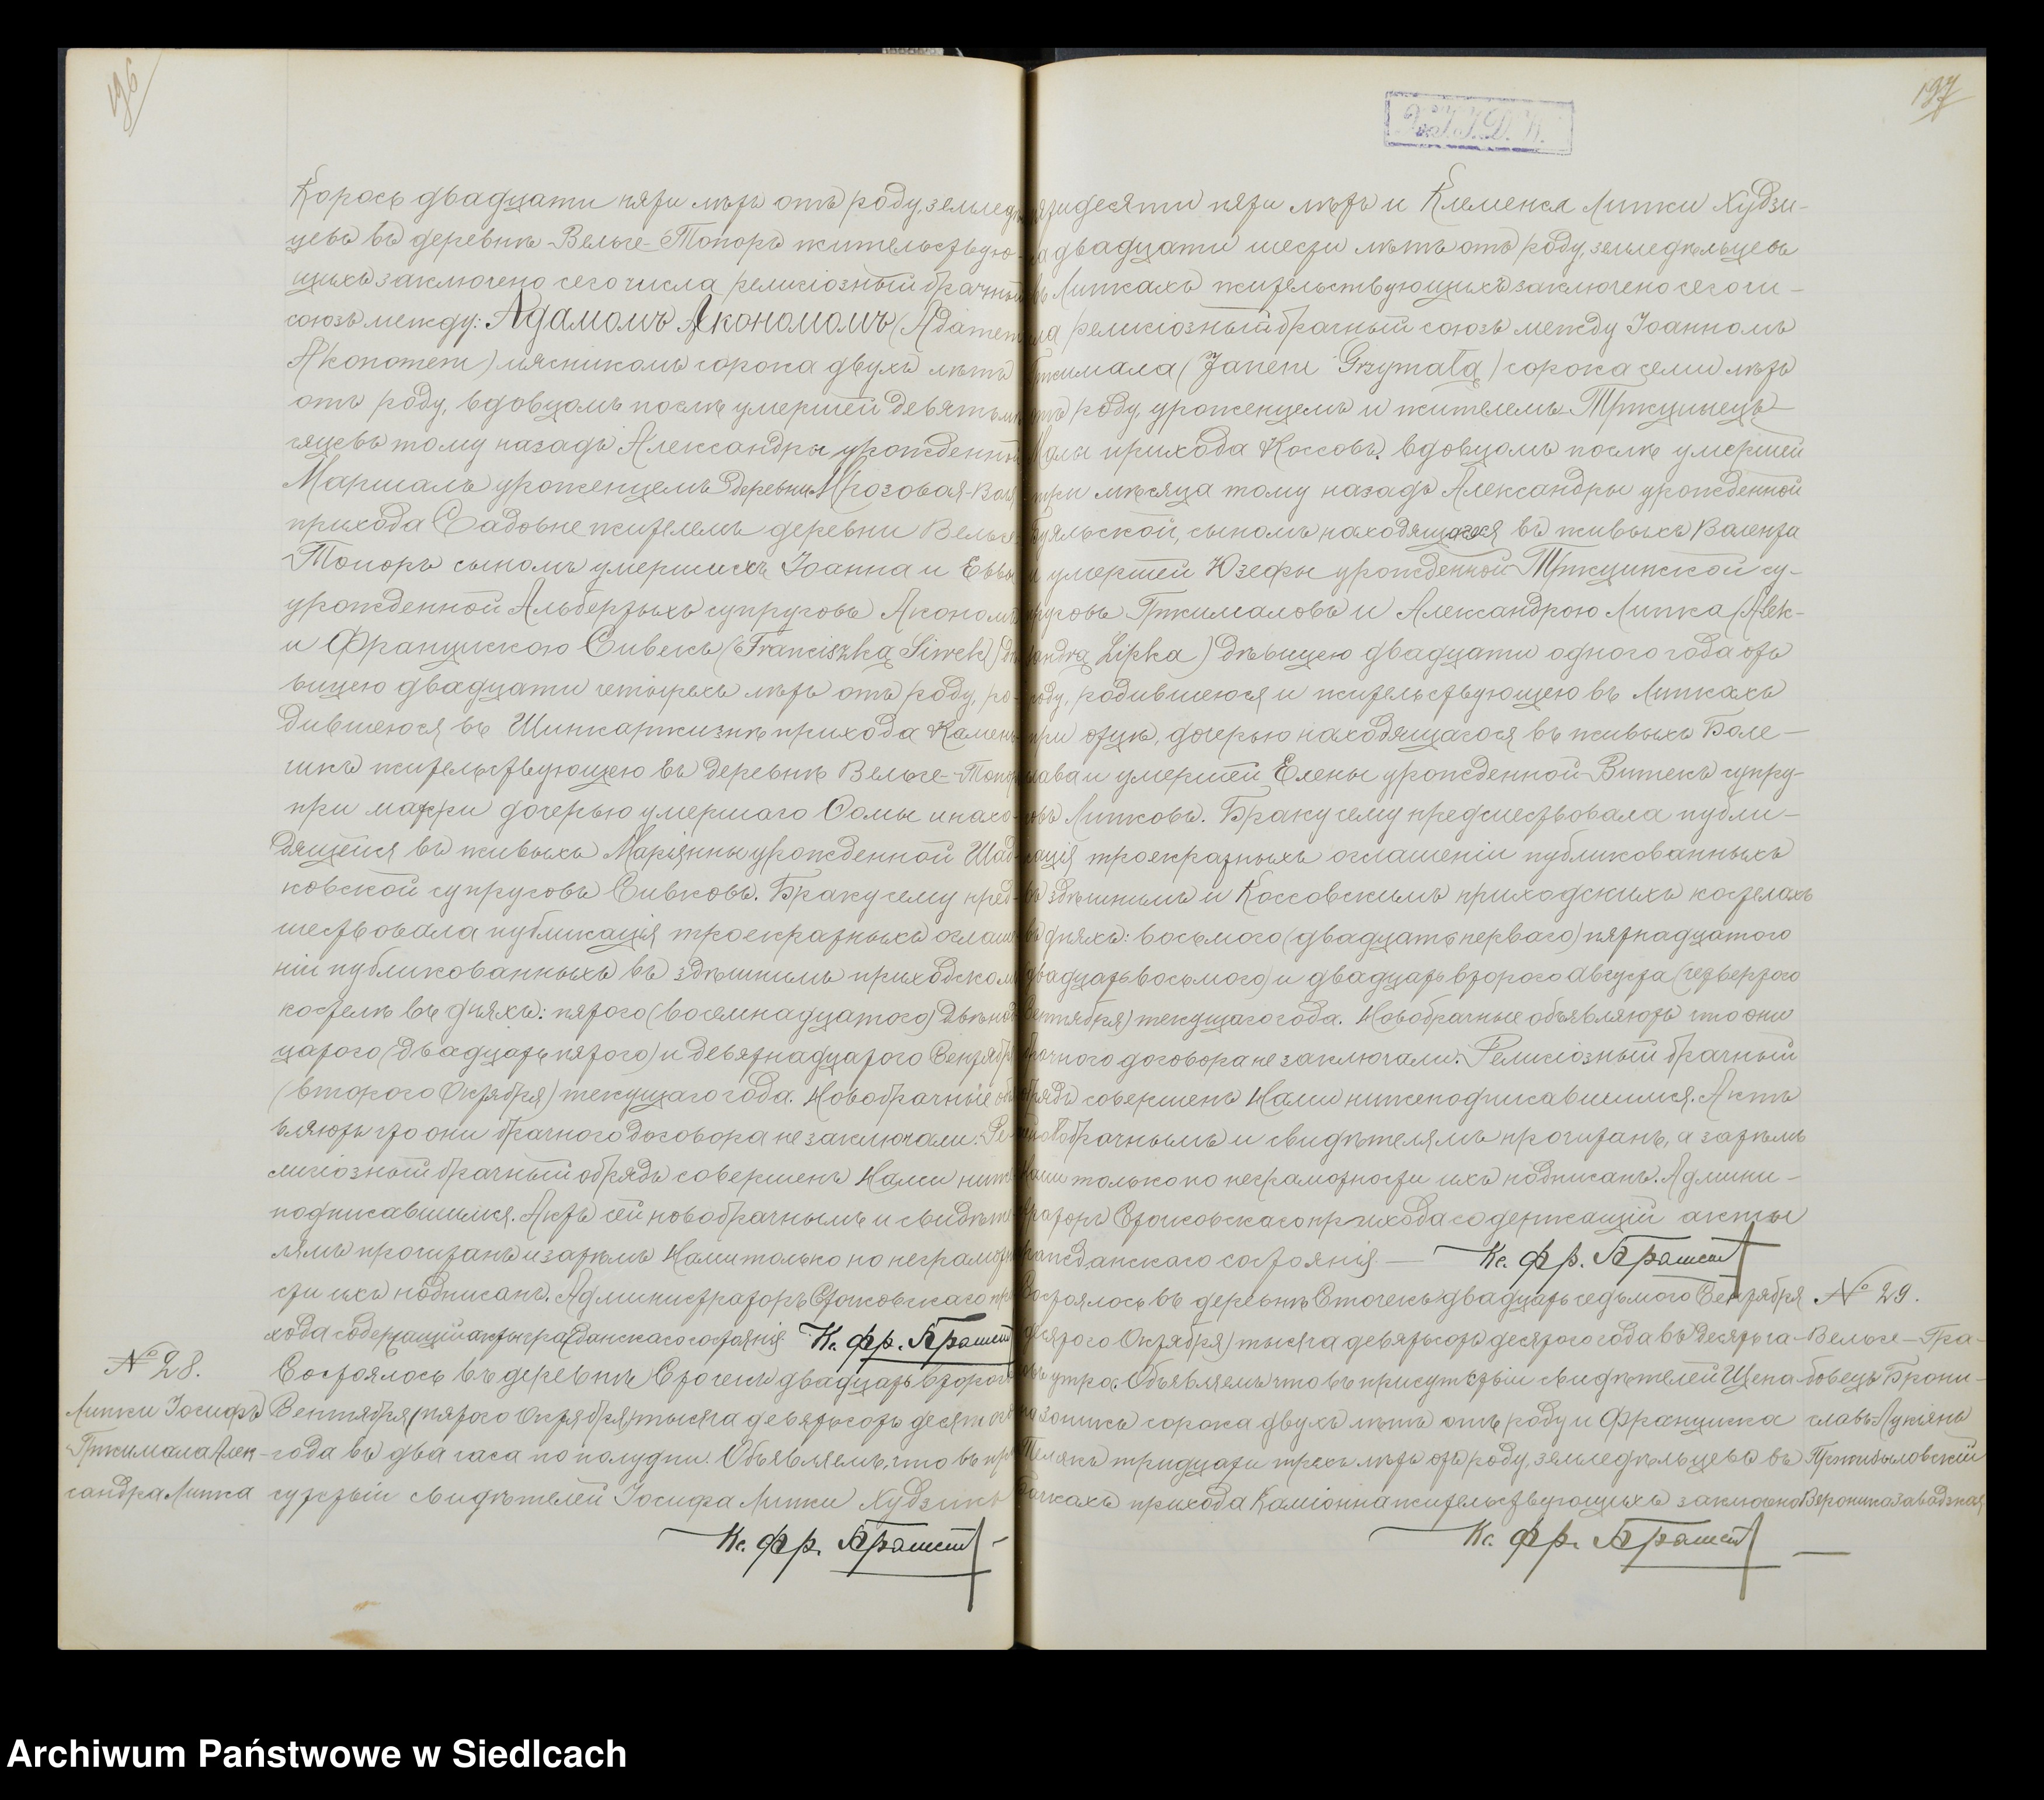 196
Корось двадцати пяти лѣтъ отъ роду, земледѣль
цевъ въ деревнѣ Вельге-Топоръ жительствую-
щихъ заключено сего числа религіозный брачный
союзъ между: Адамомъ Акономомъ (Adamem
Akonomem) мясникомъ сорока двухъ лѣтъ
отъ роду, вдовцомъ послѣ умершей девять мѣ
сяцевъ тому назадъ Александры урожденной
Маршалъ уроженцемъ деревни Мрозовая-Воля
прихода Садовне жителемъ деревни Вельге-
Топоръ сыномъ умершихъ Іоанна и Еввы
урожденной Альбертыхъ супруговъ Акономъ
и Францискою Сивекъ (Franciszką Siwek) дѣ
вицею двадцати четырехъ лѣтъ отъ роду, ро-
дившеюся въ Шинкаржизнѣ прихода Камень-
чикъ жительствующею въ деревнѣ Вельге-Топоръ
при матри дочерью умершаго Ѳомы и нахо-
дящейся въ живыхъ Маріянны урожденной Шад-
ковской супруговъ Сивковъ. Браку сему пред-
шествовала публикація троекратныхъ оглаше
ній публикованныхъ въ здѣшнимъ приходскомъ
костелѣ въ дняхъ: пятого (восемнадцатого) двѣнад
цатого (двадцать пятого) и девятнадцатого Сентября
(второго Октября) текущаго года. Новобрачные объ
вляютъ что они брачного договора не заключали. Ре-
лигіозный брачный обрядъ совершенъ Нами ниже
подписавшимся. Актъ сей новобрачнымъ и свидѣте
лямъ прочитанъ и затѣмъ Нами только по неграмотно
сти ихъ подписанъ. Администраторъ Сточковскаго при
хода содержащій акты гражданскаго состоянія Кс. Фр.
№ 28.
Липки Іосифъ
Гржимала Алек-
сандра Липка
Состоялось въ деревнѣ Сточекъ двадцать второго
Сентября (пятого Октября) тысяча девятьсотъ десятого
года въ два часа по полудни. Объявляемъ, что въ при
сутствіи свидѣтелей Іосифа Липки Худзикъ
Кс. Фр.
197
тидесяти пяти лѣтъ и Клеменса Липки Худзи-
ка двадцати шести лѣтъ отъ роду, земледѣльцевъ
въ Липкахъ жительствующихъ заключено сего чи-
сла религіозный брачный союзъ между Іоанномъ
Гржимала (Janem Grzymałą) сорока семи лѣтъ
отъ роду, уроженцемъ и жителемъ Тржцинецъ
Малы прихода Коссовъ, вдовцомъ послѣ умершей
три мѣсяца тому назадъ Александры урожденной
сыномъ находящагося въ живыхъ Валента
и умершей Юзефы урожденной Тржцинской су-
пруговъ Гржималовъ и Александрою Липка (Alek-
sandrą Lipka) дѣвицею двадцати одного года отъ
роду, родившеюся и жительствующею въ Липкахъ
при отцѣ, дочерью находящагося въ живыхъ Боле-
слава и умершей Елены урожденной Витекъ супру-
говъ Липковъ. Браку сему предшествовала публи-
кація троекратныхъ оглашеніи публикованныхъ
въ здѣшнимъ и Коссовскимъ приходскихъ костелахъ
въ дняхъ: восьмого (двадцать перваго) пятнадцатого
(двадцать восьмого) и двадцать второго Августа (четвертого
Сентября) текущаго года. Новобрачные объявляютъ что они
брачного договора не заключали. Религіозный брачный
обрядъ совершенъ Нами нижеподписавшимся. Актъ
новобрачнымъ и свидѣтелямъ прочитанъ, а затѣмъ
Нами только по неграмотности ихъ подписанъ. Админи-
страторъ Сточковскаго прихода содержащій акты
гражданскаго состоянія. Кс. Фр.
Состоялось въ деревнѣ Сточекъ двадцать седьмого Сентября
(десятого Октября) тысяча девятьсотъ десятого года въ десять ча-
совъ утра. Объявляемъ что въ присутствіи свидѣтелей Щепа
на сорока двухъ лѣтъ отъ роду и Франциска
тридцати трехъ лѣтъ отъ роду, земледѣльцевъ въ
прихода Каміонна жительствующихъ заключено
№ 29.
Вельге-Гра-
бовецъ Брони-
славъ Лукіянъ
Пржибыловскій
Вероника Завадзкая
Кс. Фр.
Archiwum Państwowe w Siedlcach